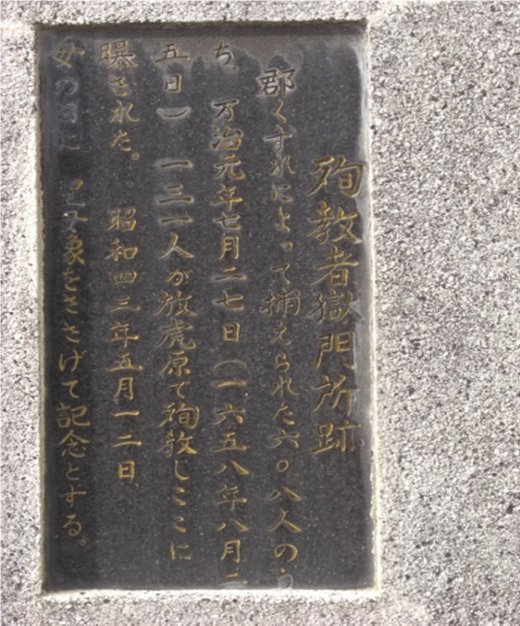 殉教者獄門所跡
郡くずれによって捕えられた六〇八人のう
ち、万治元年七月二七日（一六五八年八月二
五日）一三一人が放虎原で殉教しここに
曝された。 昭和四三年五月一二日
母の日に 聖母象をささげて記念とする。